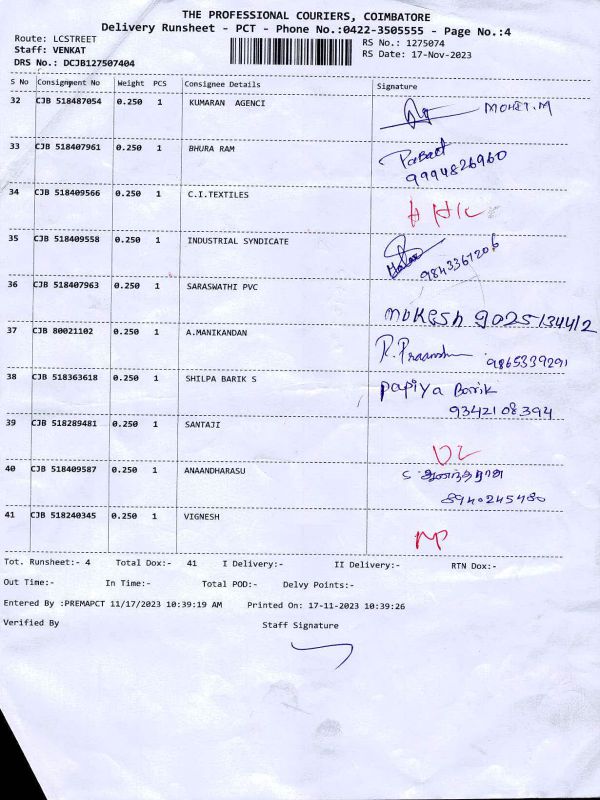 THE PROFESSIONAL COURIERS, COIMBATORE
Delivery Runsheet - PCT - Phone No.:0422-3505555 - Page No.:4
Route: LCSTREET
RS No.: 1275074
Staff: VENKAT
RS Date: 17-Nov-2023
DRS No.: DCJB127507404
S No Consignment No Weight PCS Consignee Details Signature
32 CJB 518487054 0.250 1 KUMARAN AGENCI MOHIT.M
33 CJB 518407961 0.250 1 BHURA RAM
9994826960
34 CJB 518409566 0.250 1 C.I.TEXTILES
35 CJB 518409558 0.250 1 INDUSTRIAL SYNDICATE
9843367206
36 CJB 518407963 0.250 1 SARASWATHI PVC
mukesh 9025134412
37 CJB 80021102 0.250 1 A.MANIKANDAN
9865339291
38 CJB 518363618 0.250 1 SHILPA BARIK S Papiya Barik
9342108394
39 CJB 518289481 0.250 1 SANTAJI
40 CJB 518409587 0.250 1 ANAANDHARASU
8940245480
41 CJB 518240345 0.250 1 VIGNESH
Tot. Runsheet:- 4 Total Dox:- 41 I Delivery:- II Delivery:- RTN Dox:-
Out Time:- In Time:- Total POD:- Delvy Points:-
Entered By :PREMAPCT 11/17/2023 10:39:19 AM Printed On: 17-11-2023 10:39:26
Verified By Staff Signature